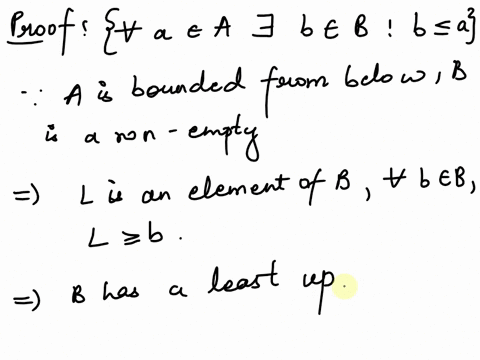 Proof: {∀ a ∈ A ∃ b ∈ B ! b ≤ a}
∵ A is bounded from below, B
is a non-empty
=) L is an element of B, ∀ b ∈ B,
L ≥ b.
=) B has a least up